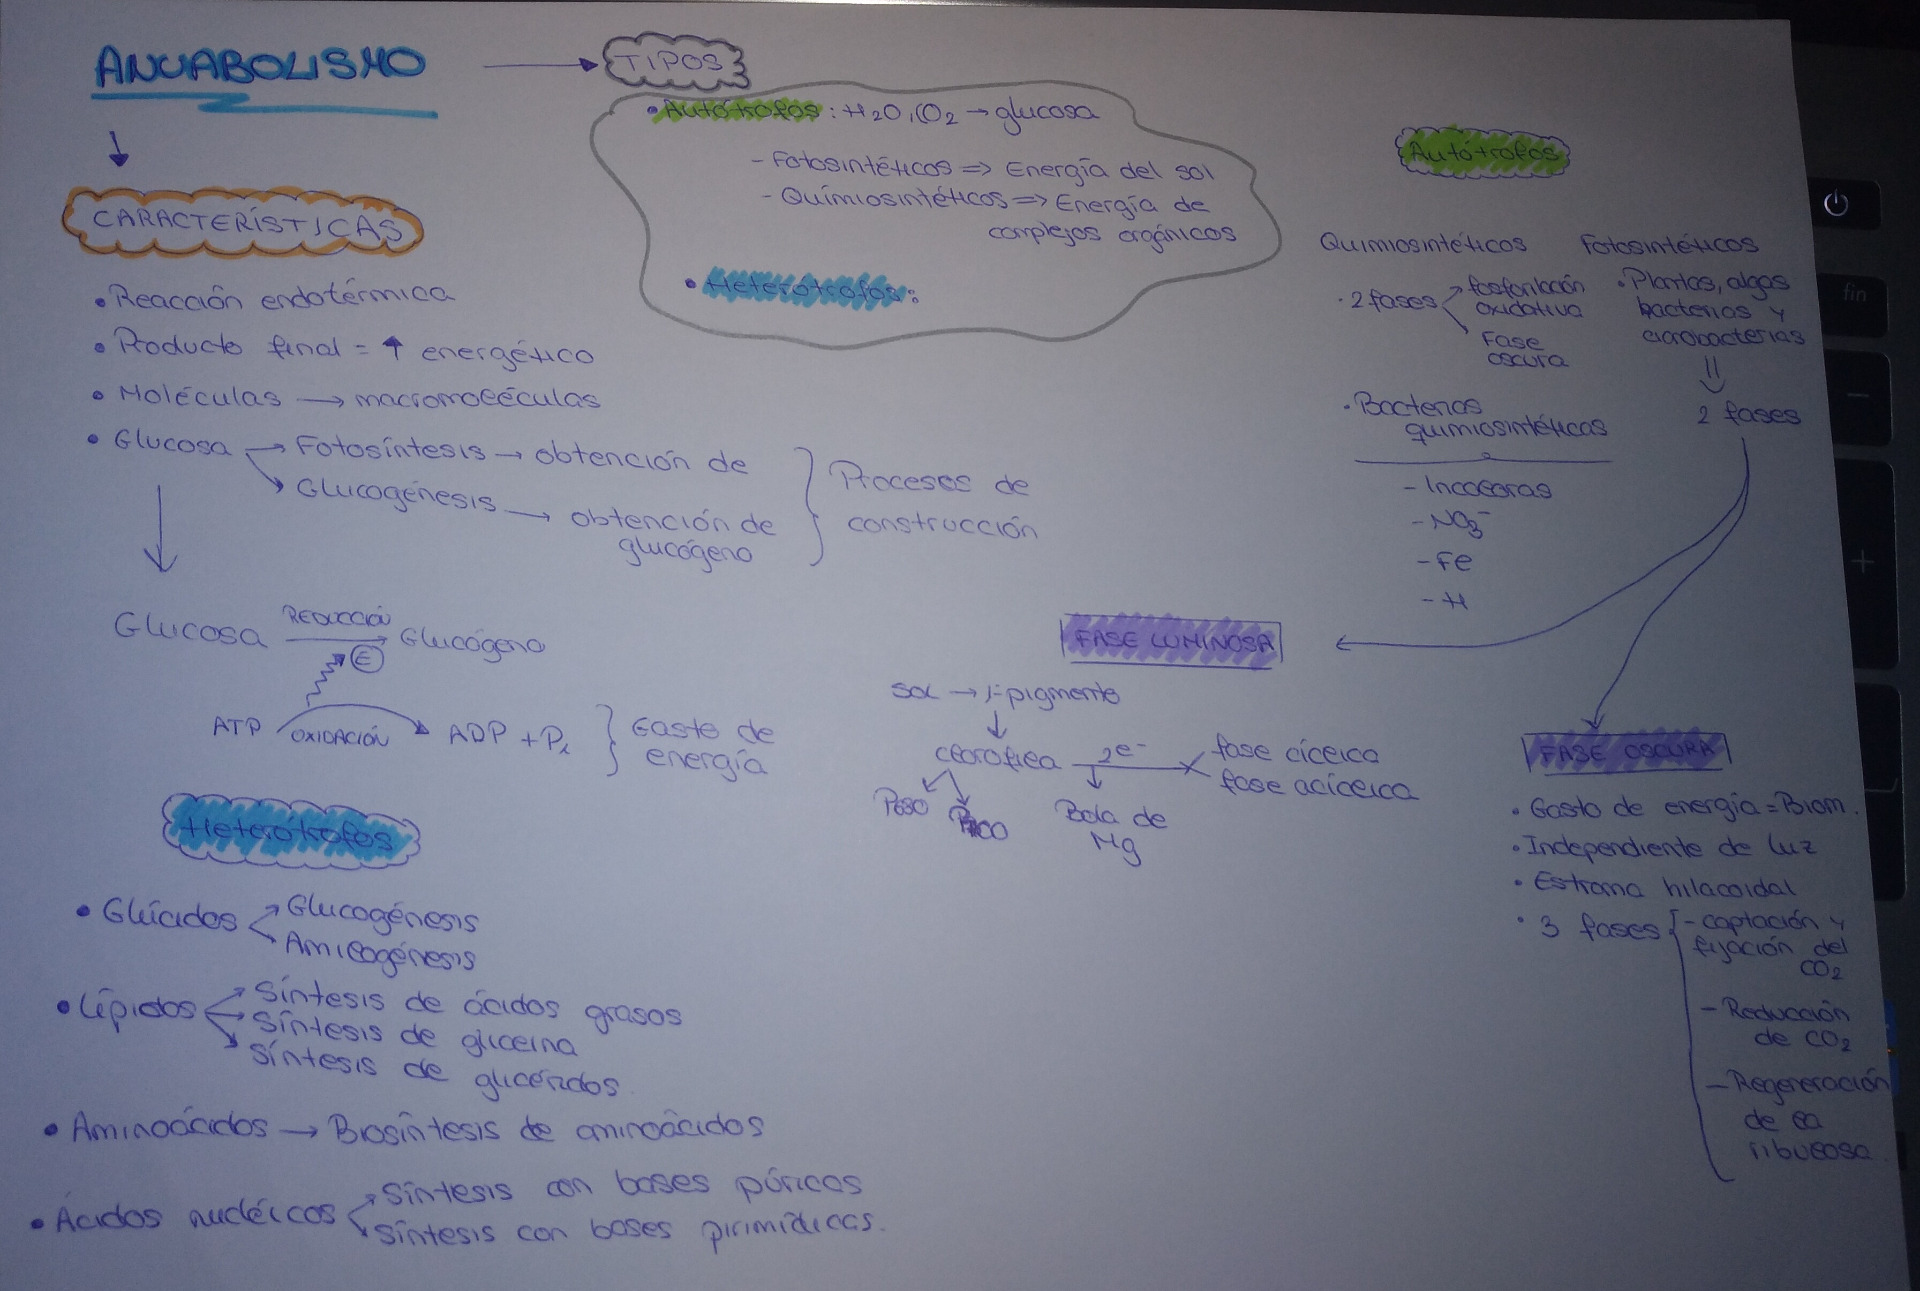 ANUABOLISMO
TIPOS
• Autótrofos: H2O, CO2 → glucosa
- Fotosintéticos => Energía del sol
- Químiosintéticos => Energía de
complejos orgánicos
• Heterótrofos:
CARACTERÍSTICAS
• Reacción endotérmica
• Producto final = ↑ energético
• Moléculas → macromoléculas
• Glucosa → Fotosíntesis → obtención de
Glucogénesis → obtención de
glucógeno
Procesos de
construcción
Glucosa REDUCCIÓN Glucógeno
E
ATP OXIDACIÓN ADP + Pi
Gasto de
energía
Heterótrofos
• Glúcidos Glucogénesis
Amilogénesis
• Lípidos Síntesis de ácidos grasos
Síntesis de glicerina
Síntesis de glicéridos
• Aminoácidos → Biosíntesis de aminoácidos
• Ácidos nucléicos Síntesis con bases púricas
Síntesis con bases pirimídicas.
Autótrofos
Quimiosintéticos
• 2 fases fosforilación
oxidativa
Fase
oscura
• Bacterias
quimiosintéticas
- Incoloras
- NO3-
- Fe
- H
Fotosintéticos
• Plantas, algas
bacterias y
cianobacterias
2 fases
FASE LUMINOSA
Sol → pigmento
clorofila 2e- fase cíclica
fase acíclica
P680
P700
Bola de
Mg
FASE OSCURA
• Gasto de energía = Biom.
• Independiente de luz
• Estroma hilacoidal
• 3 fases - captación y
fijación del
CO2
- Reducción
de CO2
- Regeneración
de la
ribulosa.
fin